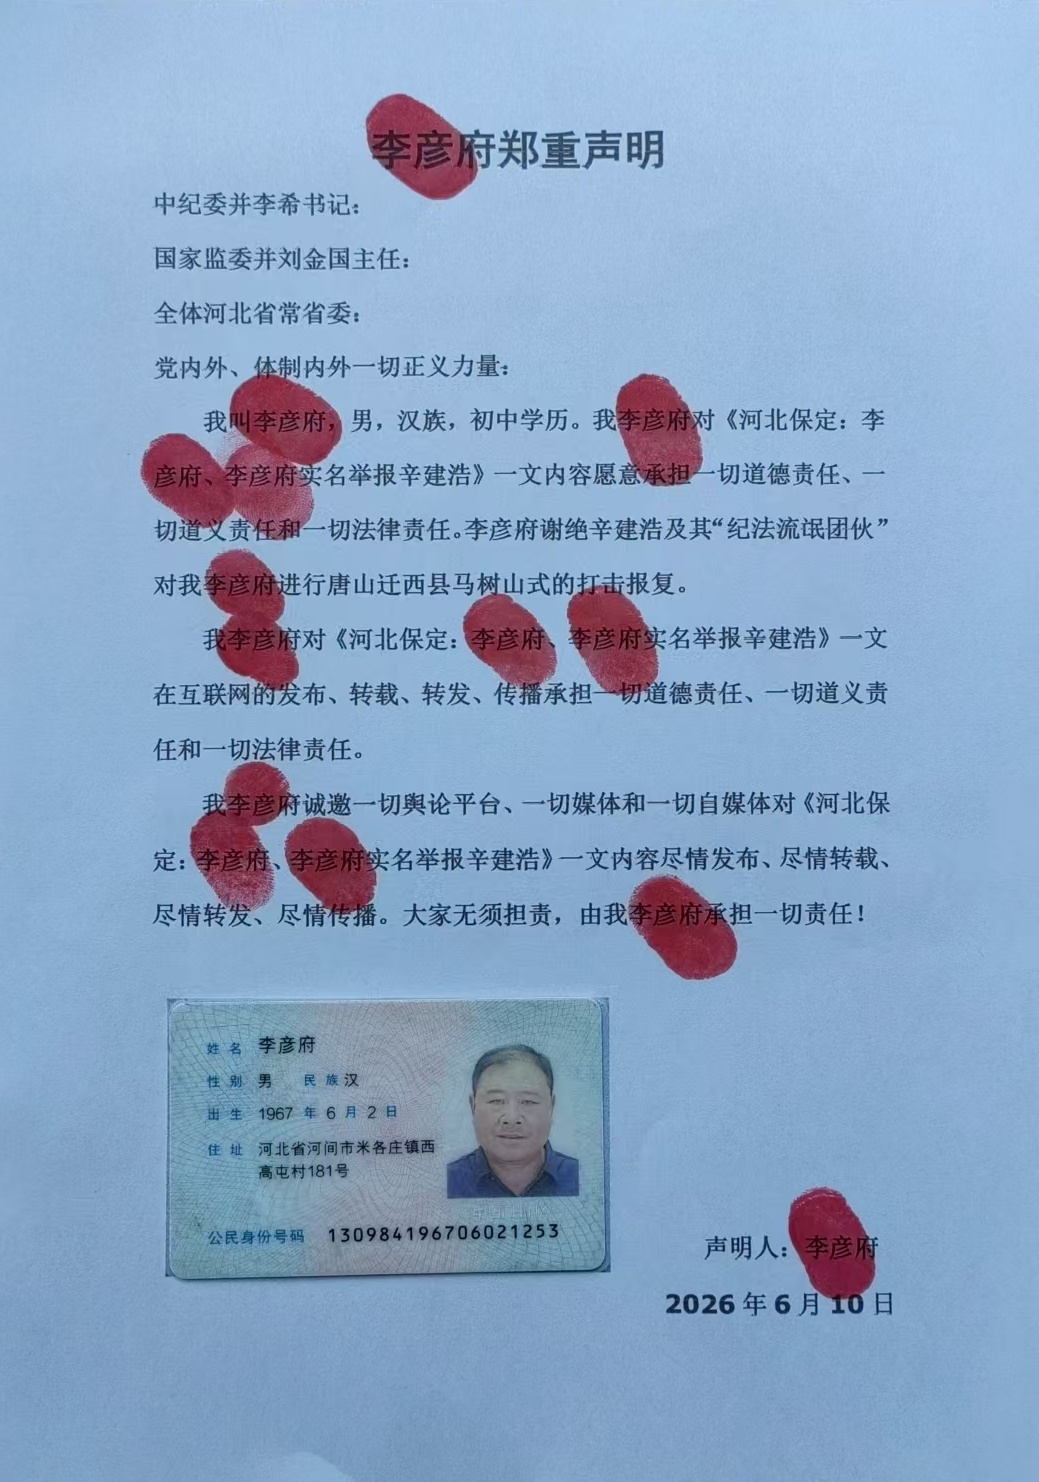 李彦府郑重声明
中纪委并李希书记：
国家监委并刘金国主任：
全体河北省常省委：
党内外、体制内外一切正义力量：
我叫李彦府，男，汉族，初中学历。我李彦府对《河北保定：李
彦府、李彦府实名举报辛建浩》一文内容愿意承担一切道德责任、一
切道义责任和一切法律责任。李彦府谢绝辛建浩及其“纪法流氓团伙”
对我李彦府进行唐山迁西县马树山式的打击报复。
我李彦府对《河北保定：李彦府、李彦府实名举报辛建浩》一文
在互联网的发布、转载、转发、传播承担一切道德责任、一切道义责
任和一切法律责任。
我李彦府诚邀一切舆论平台、一切媒体和一切自媒体对《河北保
定：李彦府、李彦府实名举报辛建浩》一文内容尽情发布、尽情转载、
尽情转发、尽情传播。大家无须担责，由我李彦府承担一切责任！
姓名 李彦府
性别 男 民族 汉
出生 1967 年 6 月 2 日
住址 河北省河间市米各庄镇西
高屯村181号
公民身份号码 130984196706021253
声明人：李彦府
2026 年 6 月 10 日